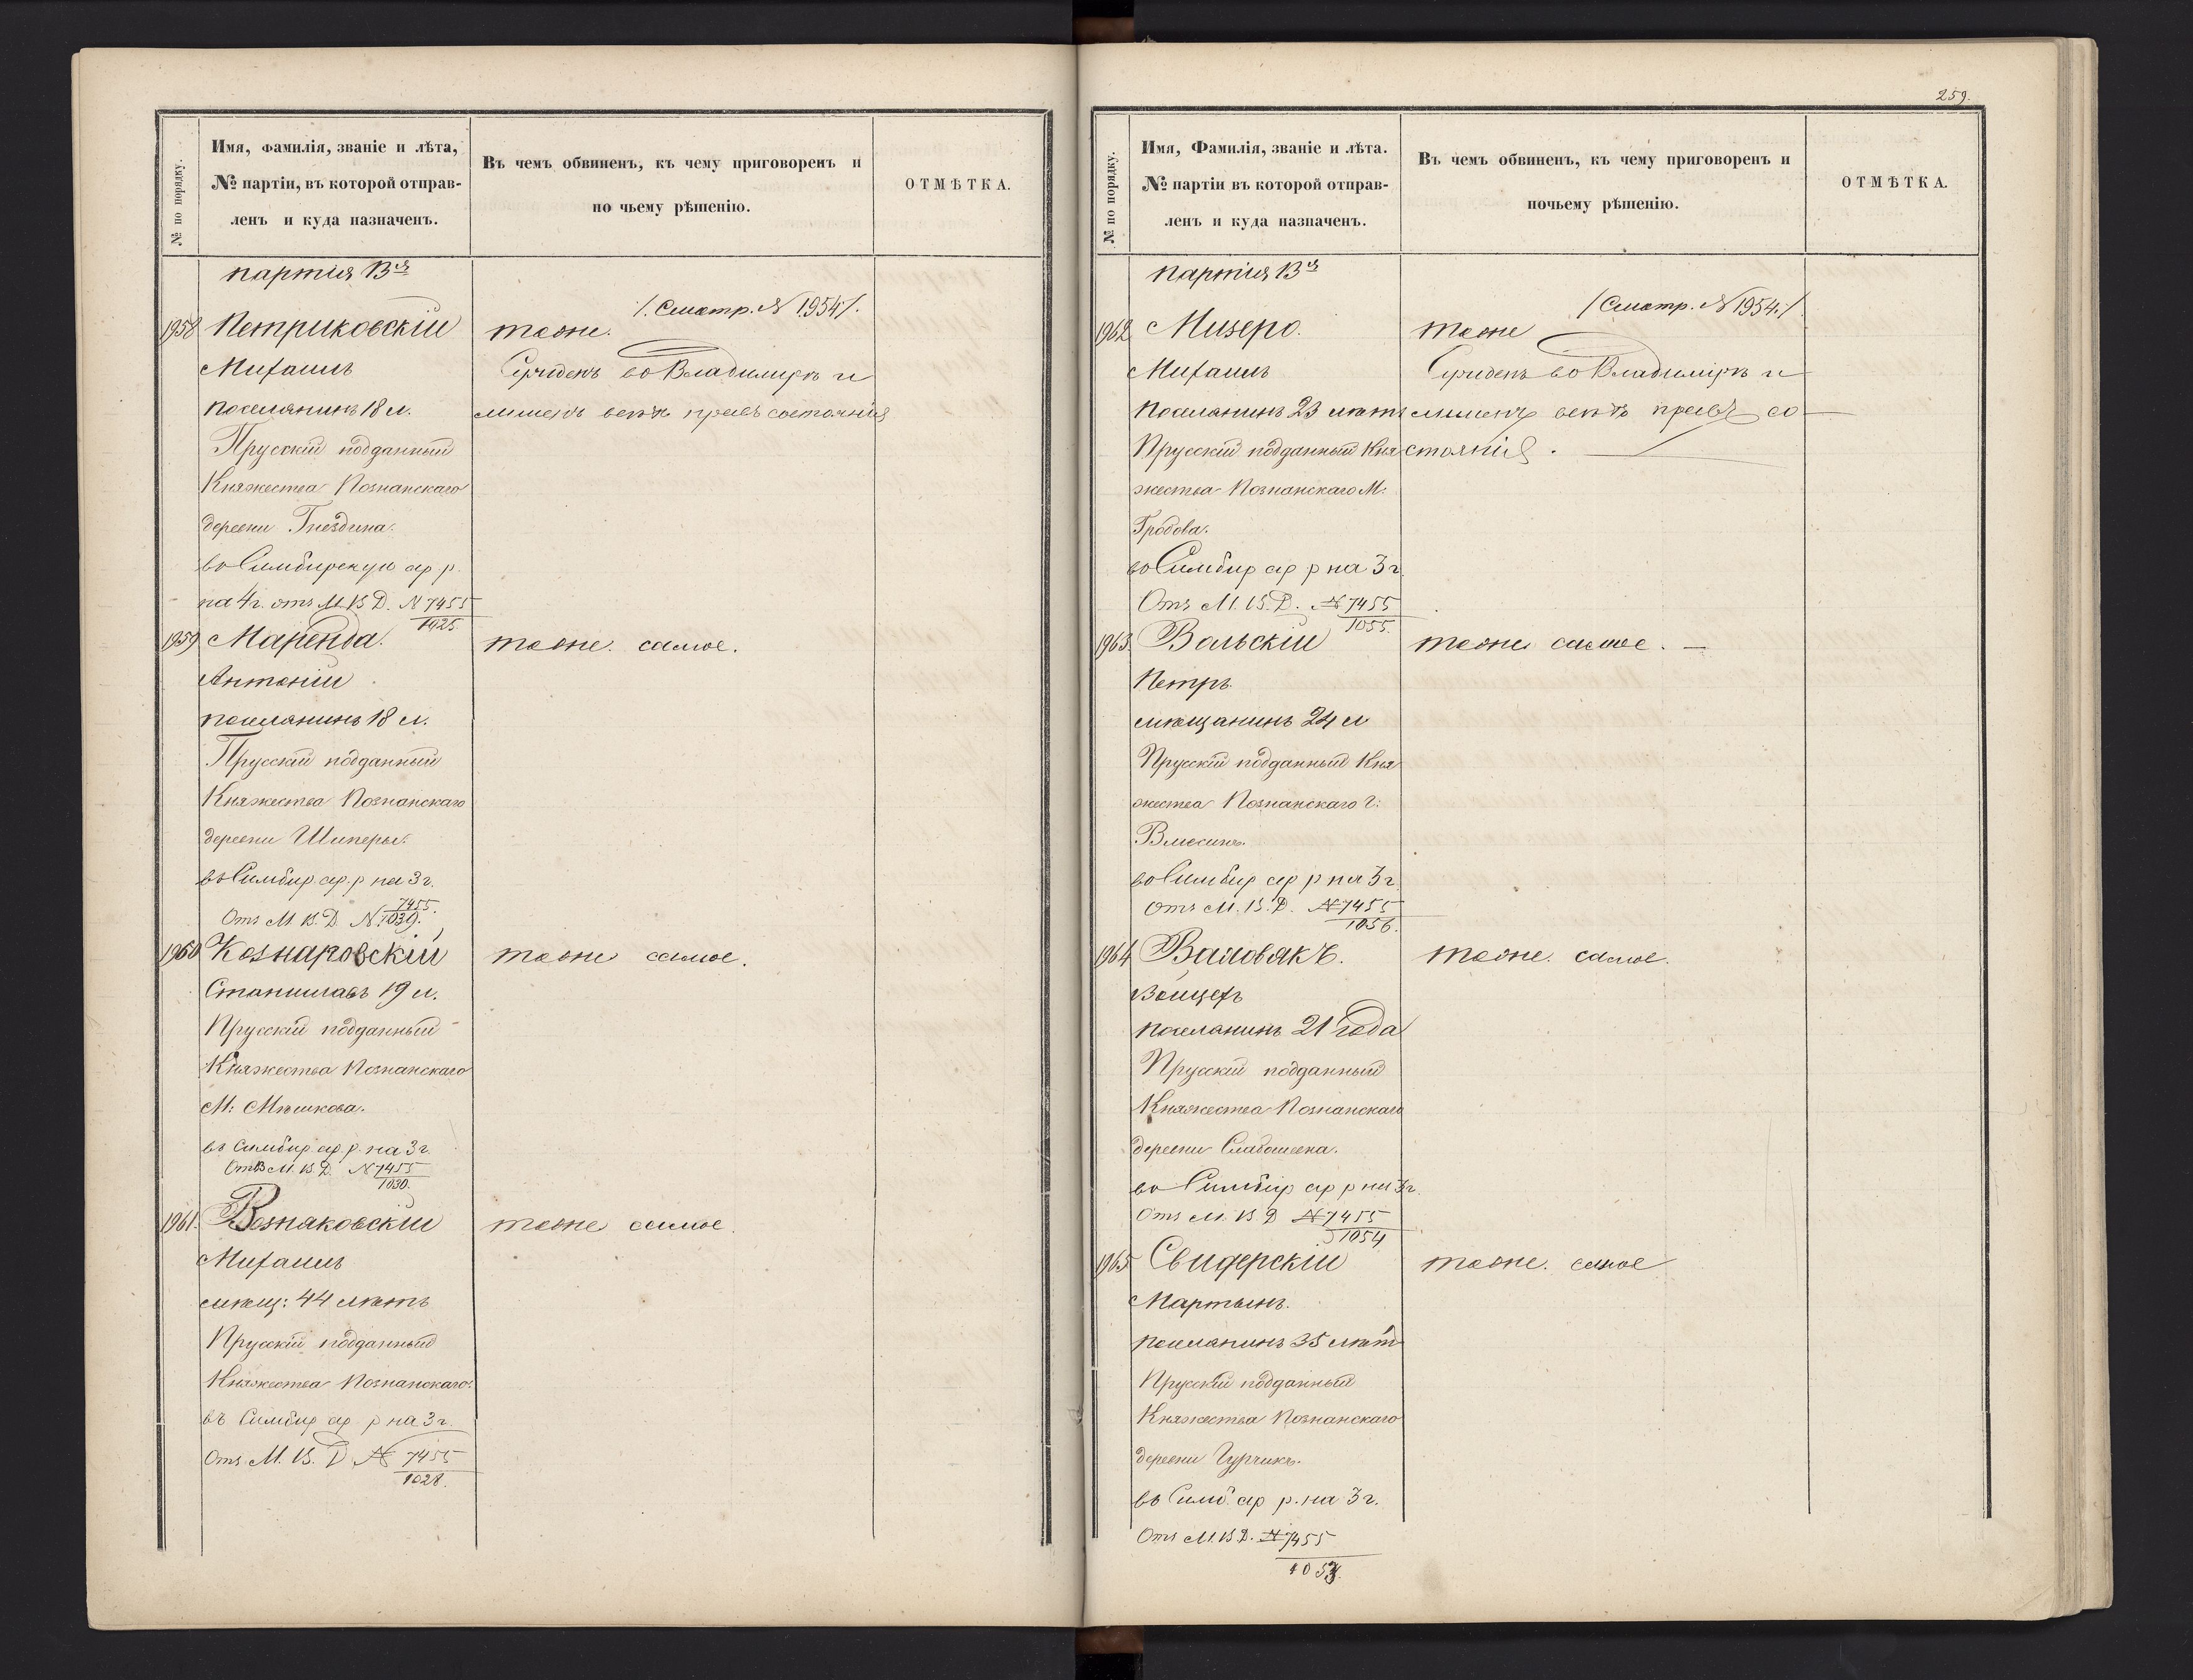 № по порядку.
Имя, фамилія, званіе и лѣта,
№ партіи, въ которой отправ-
ленъ и куда назначенъ.
Въ чемъ обвиненъ, къ чему приговоренъ и
по чьему рѣшенію.
ОТМѢТКА.
партія 13я
/. Смотр. № 1954 /.
1958 Петриковскій
тоже.
Михаилъ
Сужденъ во Владимірѣ и
поселянинъ 18 л.
лишенъ всѣхъ правъ состоянія
Прусскій подданный
Княжества Познанскаго
деревни Гнездина.
во Симбирскую ар р
на 4 г. отъ М. В. Д. № 7455
1025
1959 Маренда.
тоже. самое.
Антоній
поселянинъ 18 л.
Прусскій подданный
Княжества Познанскаго
деревни Шиперы.
въ Симбир. ар. р на 3 г.
Отъ М. В. Д. № 7455.
1039.
1960 Кознаровскій
тоже самое.
Станиславъ 19 л.
Прусскій подданный
Княжества Познанскаго
М: Мѣшкова.
въ Симбир ар р. на 3 г.
Отъ М. В. Д. № 7455
1030.
1961. Вознаковскій
тоже самое.
Михаилъ
мѣщ: 44 лѣтъ
Прусскій подданный
Княжества Познанскаго.
въ Симбир ар р на 3 г.
Отъ М. В. Д. № 7455
1028.
259.
№ по порядку.
Имя, Фамилія, званіе и лѣта.
№ партіи въ которой отправ-
ленъ и куда назначенъ.
Въ чемъ обвиненъ, къ чему приговоренъ и
почьему рѣшенію.
ОТМѢТКА.
партія 13я
/ Смотр. № 1954. /.
1962 Мизеро.
тоже
Михаилъ
Сужденъ во Владимірѣ и
поселянинъ 23 лѣтъ
лишенъ всѣхъ правъ со-
Прусскій подданный Кня
стоянія.
жества Познанскаго М:
Гродова.
во Симбир ар р на 3 г.
Отъ М. В. Д. № 7455
1055.
1963. Вольскій
тоже самое. —
Петръ.
мѣщанинъ 24 л
Прусскій подданный Кня
жества Познанскаго г:
во Симбир ар р на 3 г.
Отъ М. В. Д. № 7455
1056.
1964 Валовякъ.
тоже. самое.
Войцехъ
поселянинъ 21 года
Прусскій подданный
Княжества Познанскаго
деревни Слабошевка.
во Симбир ар р на 3 г.
Отъ М. В. Д № 7455
1054
1965 Свидерскій
тоже. самое
Мартынъ.
поселанинъ 35 лѣтъ
Прусскій подданный
Княжества Познанскаго
деревни Гурчикъ.
въ Симб. ар р. на 3 г.
Отъ М. В Д. № 7455